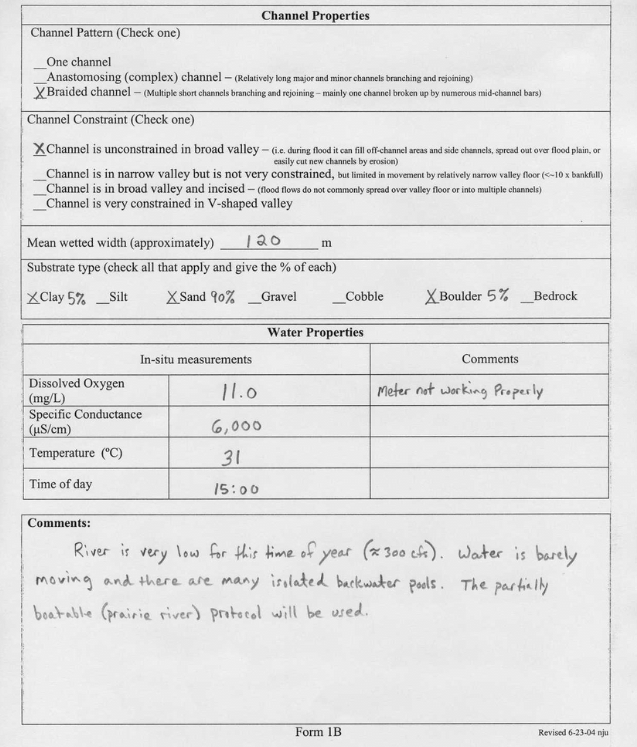 Channel Properties
Channel Pattern (Check one)
__One channel
__Anastomosing (complex) channel – (Relatively long major and minor channels branching and rejoining)
X Braided channel – (Multiple short channels branching and rejoining – mainly one channel broken up by numerous mid-channel bars)
Channel Constraint (Check one)
X Channel is unconstrained in broad valley – (i.e. during flood it can fill off-channel areas and side channels, spread out over flood plain, or
easily cut new channels by erosion)
__Channel is in narrow valley but is not very constrained, but limited in movement by relatively narrow valley floor (<~10 x bankfull)
__Channel is in broad valley and incised – (flood flows do not commonly spread over valley floor or into multiple channels)
__Channel is very constrained in V-shaped valley
Mean wetted width (approximately) 120 m
Substrate type (check all that apply and give the % of each)
X Clay 5% __Silt X Sand 90% __Gravel __Cobble X Boulder 5% __Bedrock
Water Properties
In-situ measurements Comments
Dissolved Oxygen
(mg/L) 11.0 Meter not working Properly
Specific Conductance
(µS/cm) 6,000
Temperature (ºC) 31
Time of day 15:00
Comments:
River is very low for this time of year (≈300 cfs). Water is barely
moving and there are many isolated backwater pools. The partially
boatable (prairie river) protocol will be used.
Form 1B Revised 6-23-04 nju